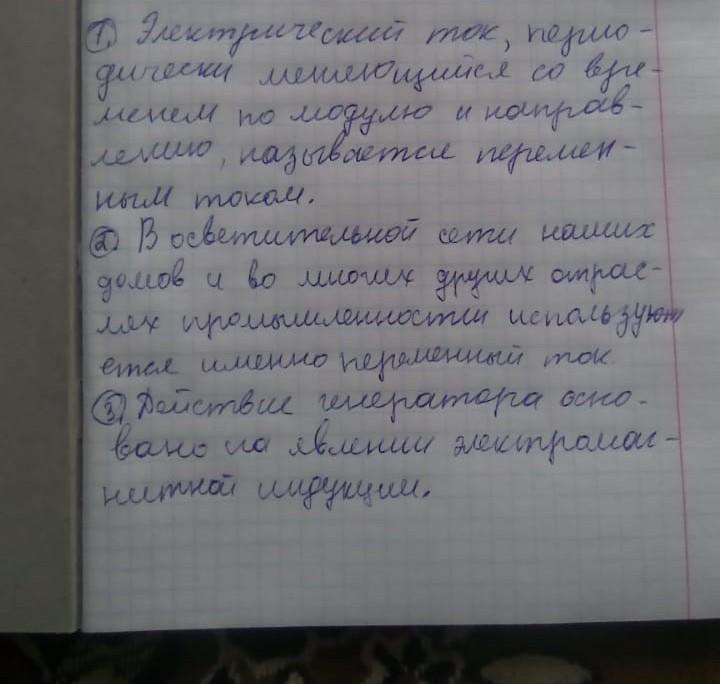 1. Электрический ток, перио-
дически меняющийся со вре-
менем по модулю и направ-
лению, называется перемен-
ным током.
2. В осветительной сети наших
домов и во многих других отрас-
лях промышленности использую
ется именно переменный ток
3. Действие генератора осно-
вано на явлении электромаг-
нитной индукции.